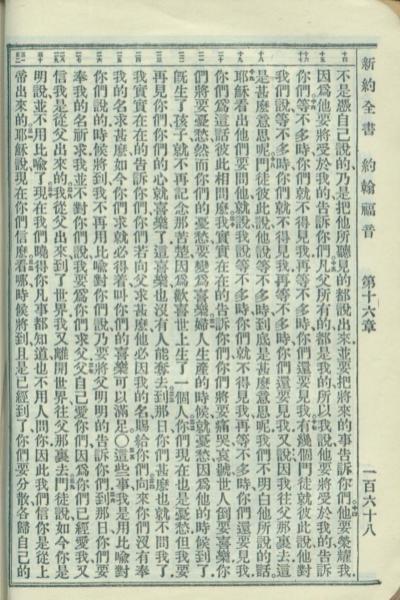 新約全書 約翰福音 第十六章 一百六十八
不是憑自己說的、乃是把他所聽見的都說出來、並要把將來的事告訴你們他要榮耀我、
因爲他要將受於我的、告訴你們凡父所有的都是我的、所以我說他要將受於我的、告訴
你們等不多時、你們就不得見我、再等不多時、你們還要見我有幾個門徒就彼此說、他對
我們說、等不多時、你們就不得見我、再等不多時、你們還要見我、又說因我往父那裏去、這
是甚麼意思呢門徒彼此說、他說等不多時到底是甚麼意思呢、我們不明白他所說的話。
耶穌看出他們要問他、就說、我說等不多時、你們就不得見我、再等不多時、你們還要見我、
你們爲這話彼此相問麼我實實在在的告訴你們、你們將要痛哭哀號、世人倒要喜樂、你
們將要憂愁、然而你們的憂愁、要變爲喜樂婦人生產的時候就憂愁、因爲他的時候到了、
旣生了孩子、就不再記念那苦楚、因爲歡喜世上生了一個人你們現在也是憂愁、但我要
再見你們、你們的心就喜樂了、這喜樂也沒有人能奪去到那日你們甚麼也就不問我了、
我實實在在的告訴你們、你們若向父求甚麼、他必因我的名賜給你們向來你們沒有奉
我的名求甚麼、如今你們求就必得着、叫你們的喜樂可以滿足〇這些事我是用比喩對
你們說的、時候將到、我不再用比喩對你們說、乃要將父明明的告訴你們到那日你們要
奉我的名祈求、我並不對你們說、我要爲你們求父父自己愛你們、因爲你們已經愛我、又
信我是從父出來的我從父出來、到了世界、我又離開世界、往父那裏去門徒說、如今你是
明說、並不用比喩了現在我們曉得你凡事都知道、也不用人問你、因此我們信你是從上
帝出來的耶穌說、現在你們信麼看哪、時候將到、且是已經到了、你們要分散、各歸自己的